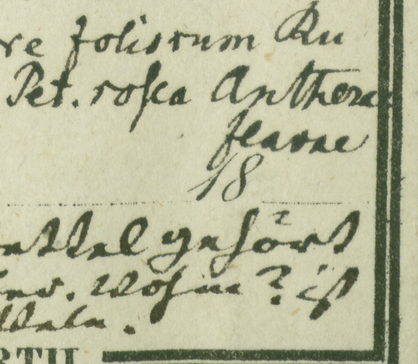 re foliorum Ru
Pet. rosea Antherae
flavae
18
ettel gehört
er. Wohin? ist
tteln.
RTH